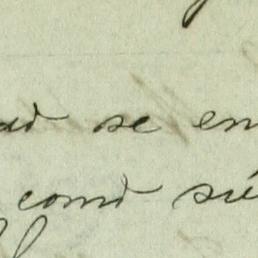 ad se en
como sie